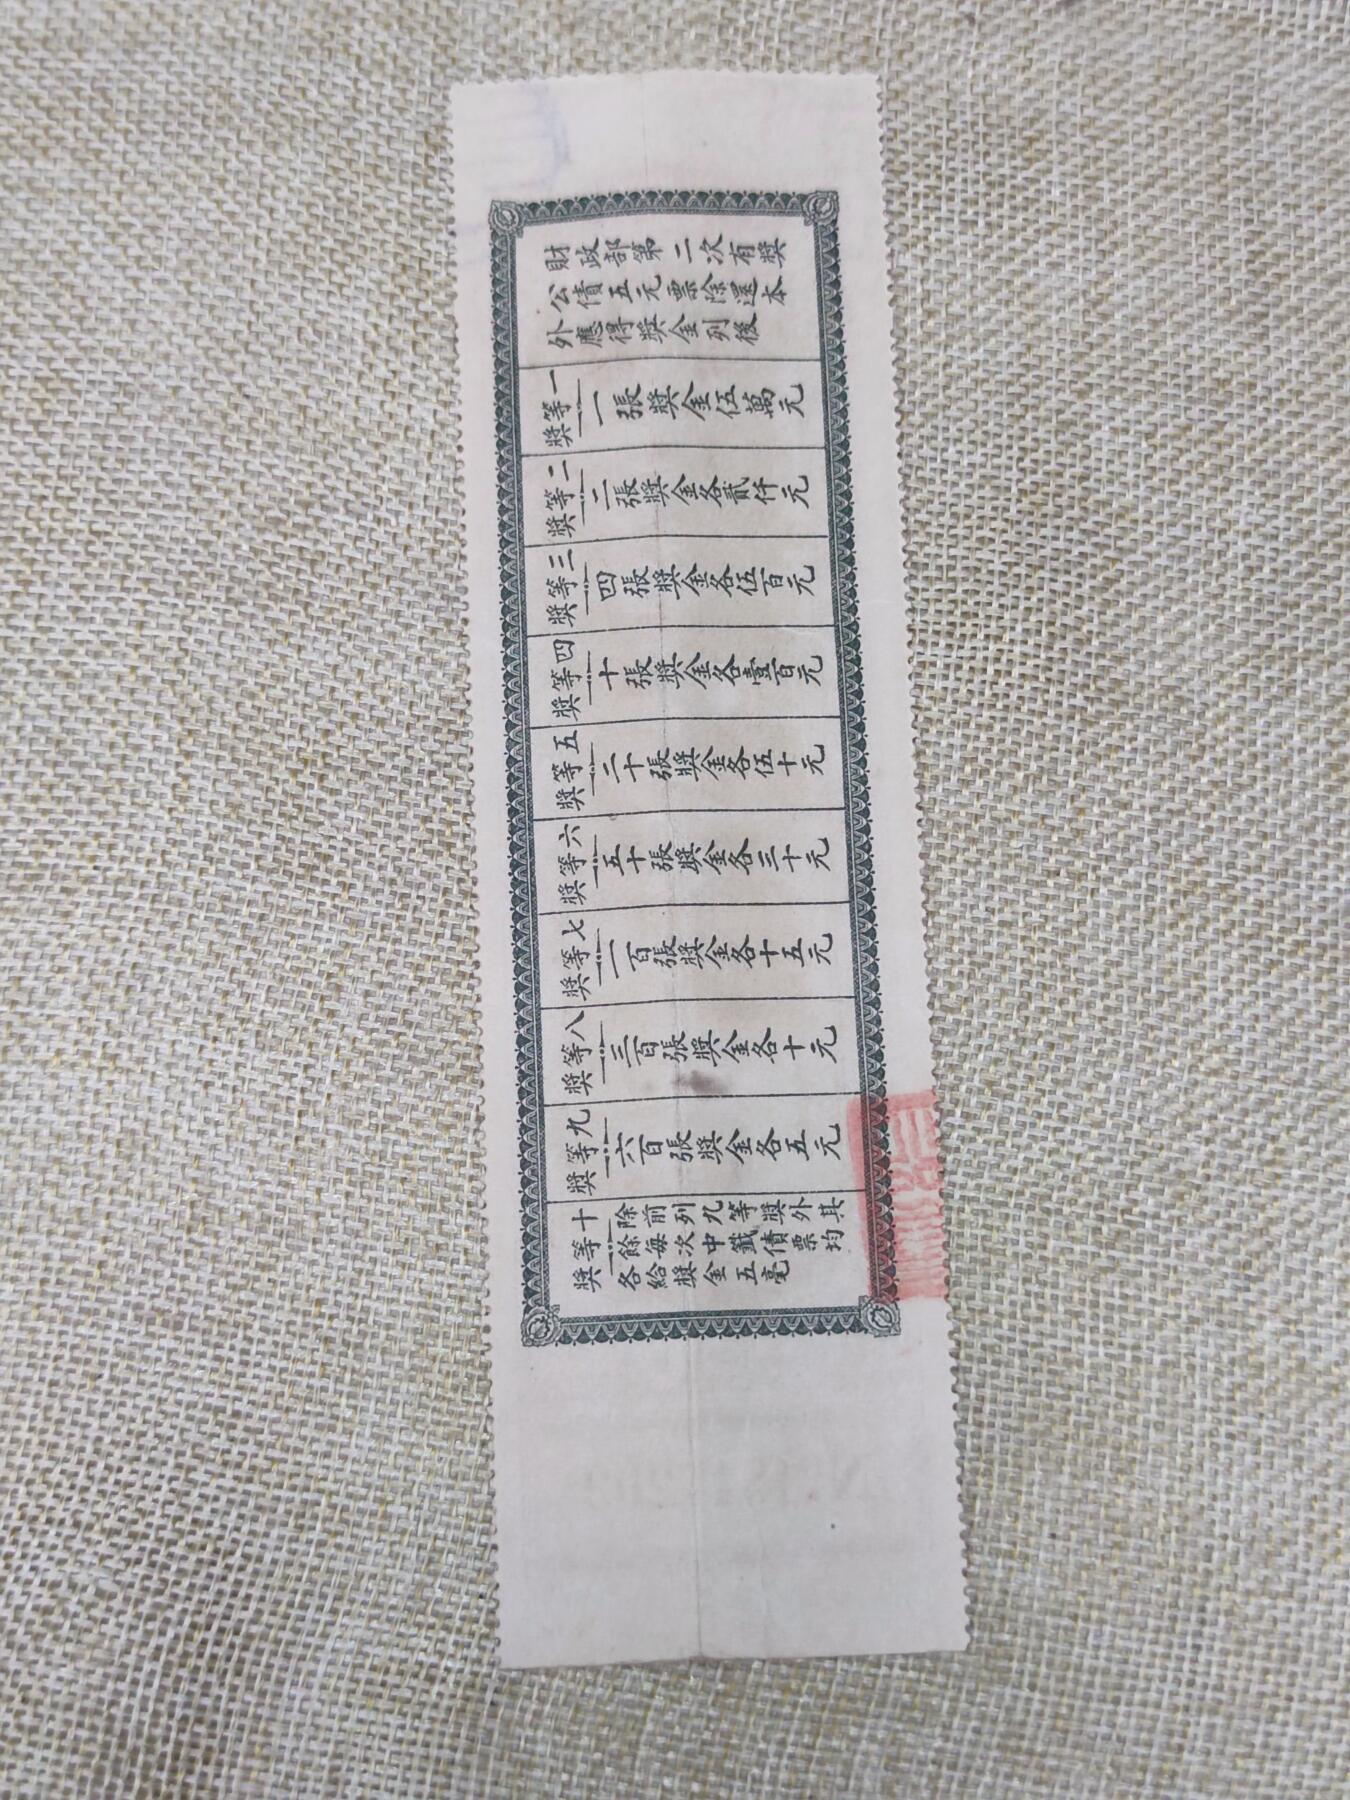 財政部第二次有獎
公債五元票除還本
外應得獎金列後
一等獎
一張獎金伍萬元
二等獎
二張獎金各貳仟元
三等獎
四張獎金各伍百元
四等獎
十張獎金各壹百元
五等獎
二十張獎金各伍十元
六等獎
五十張獎金各三十元
七等獎
一百張獎金各十五元
八等獎
三百張獎金各十元
九等獎
六百張獎金各五元
十等獎
除前列九等獎外其
餘每次中籤債票均
各給獎金五毫